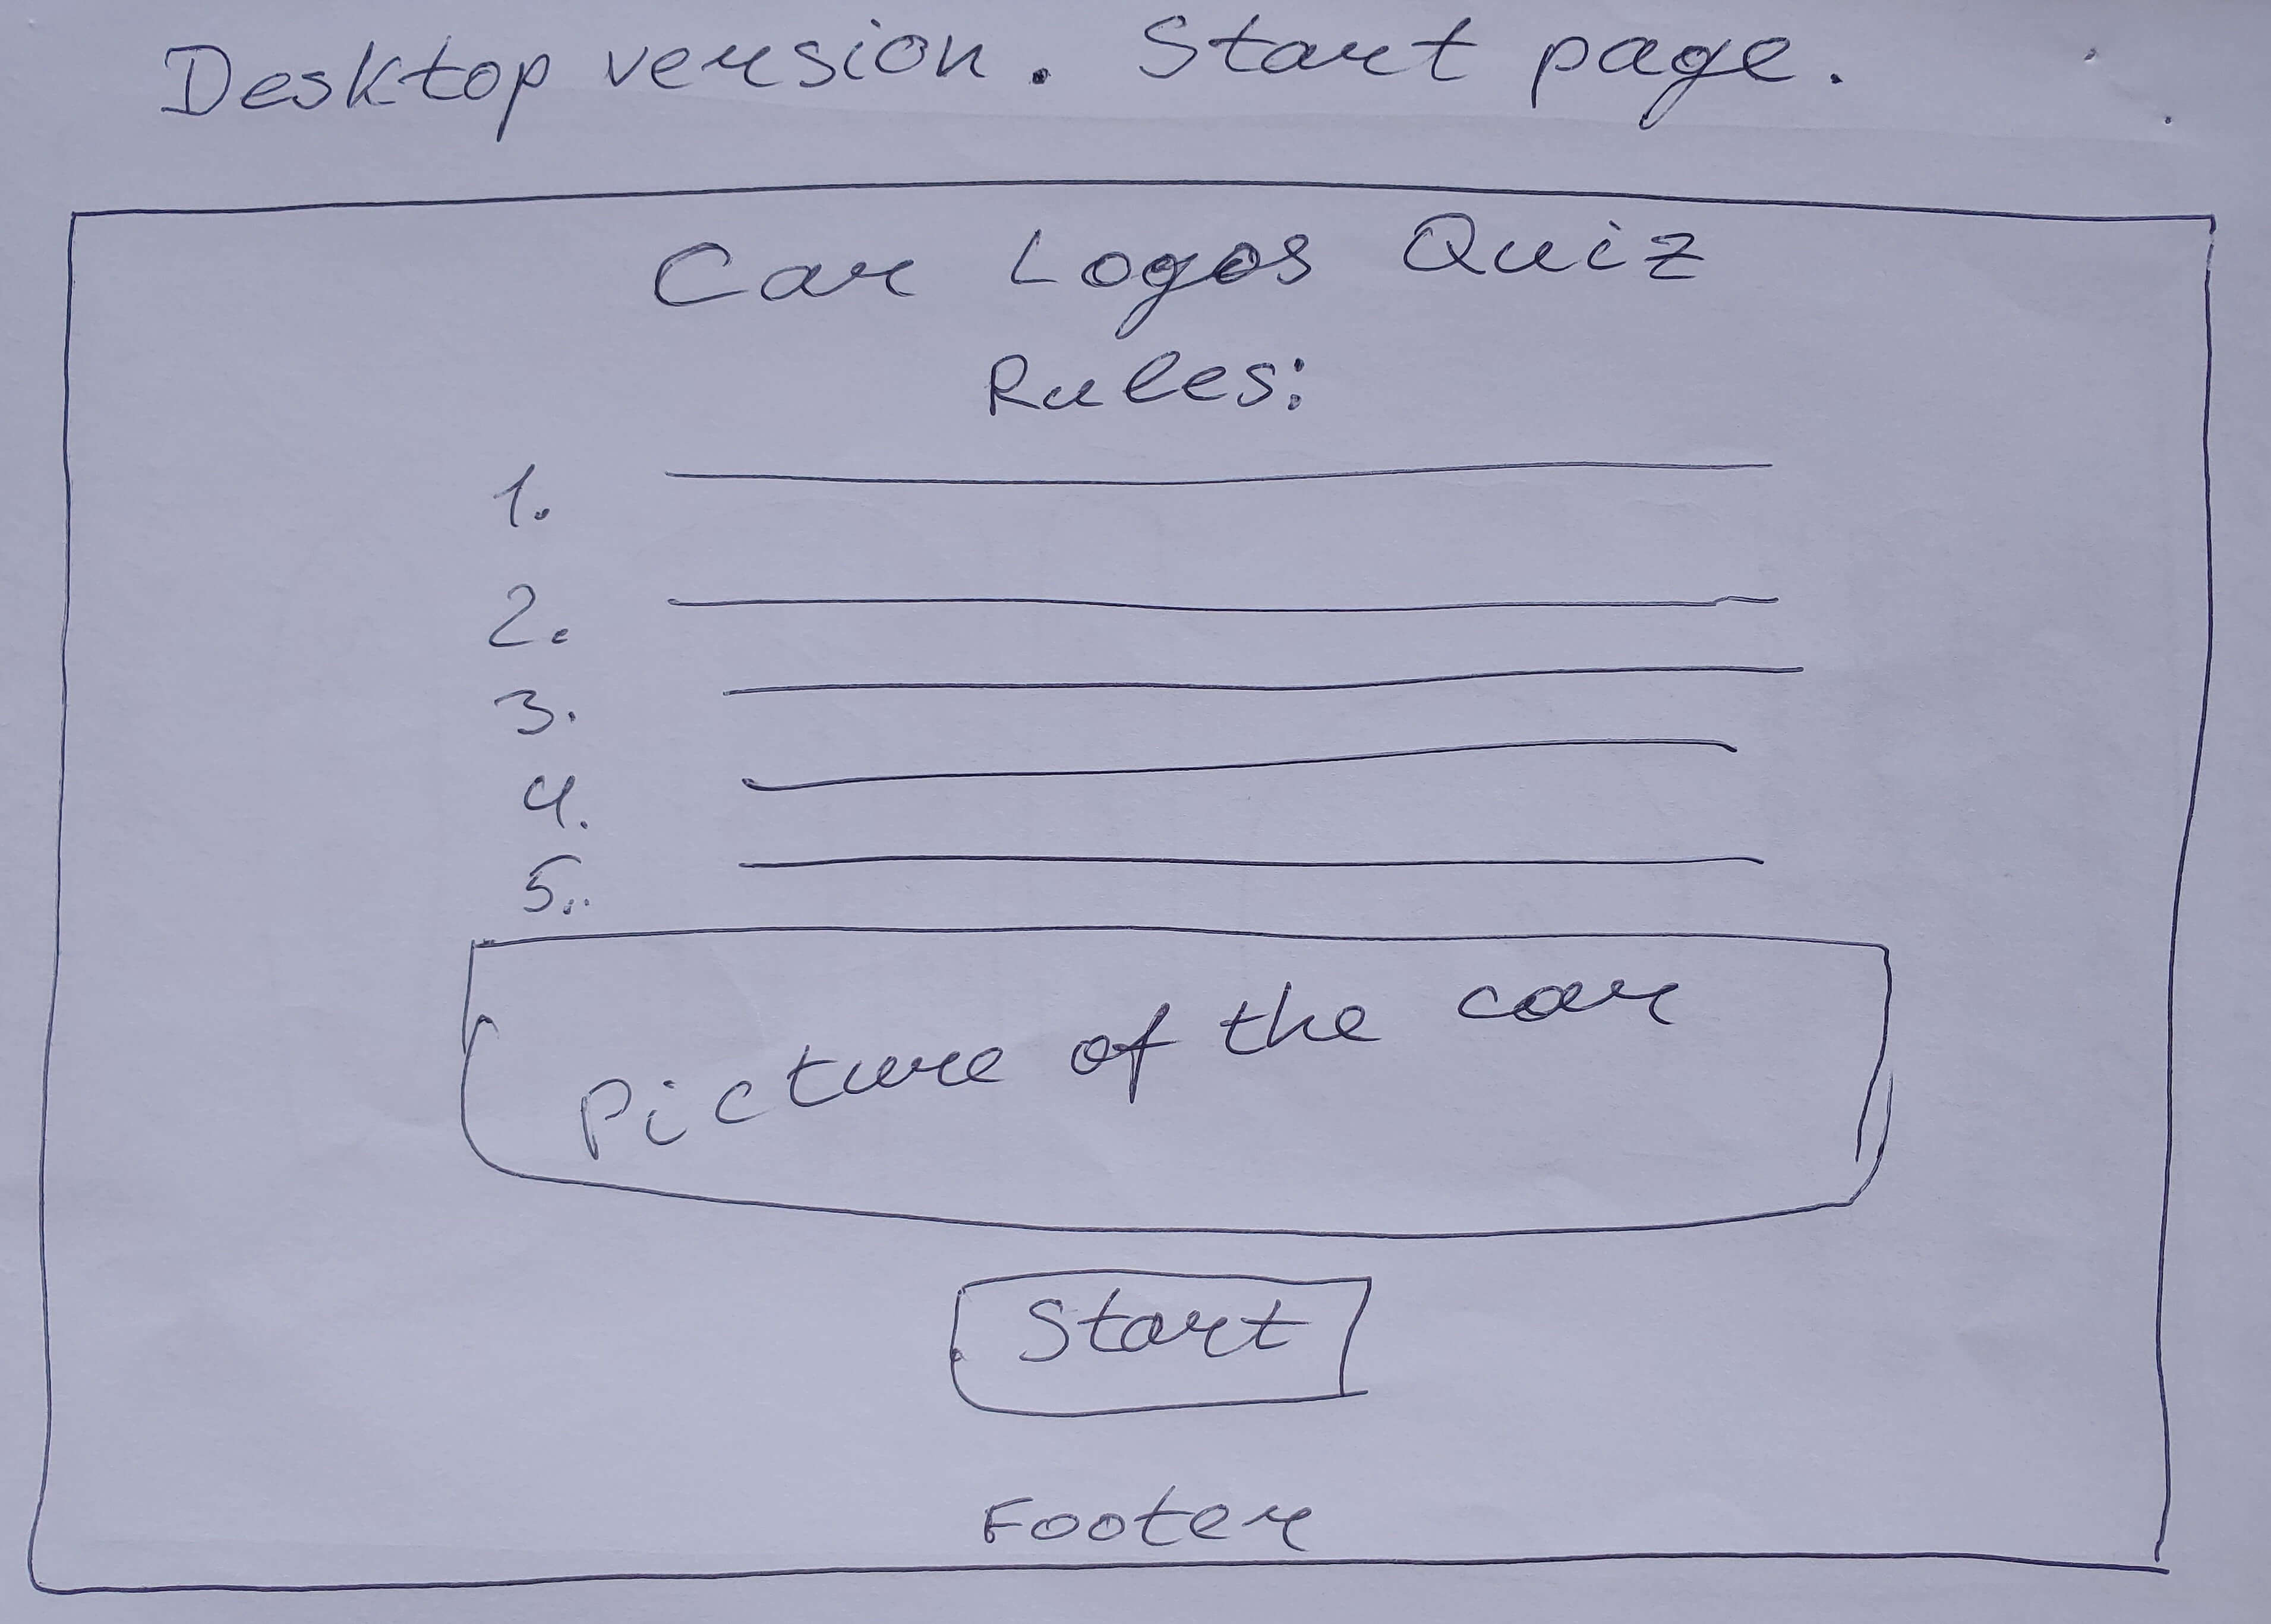 Desktop version. Start page.
Car Logos Quiz
Rules:
1.
2.
3.
4.
5..
Picture of the car
Start
Footer